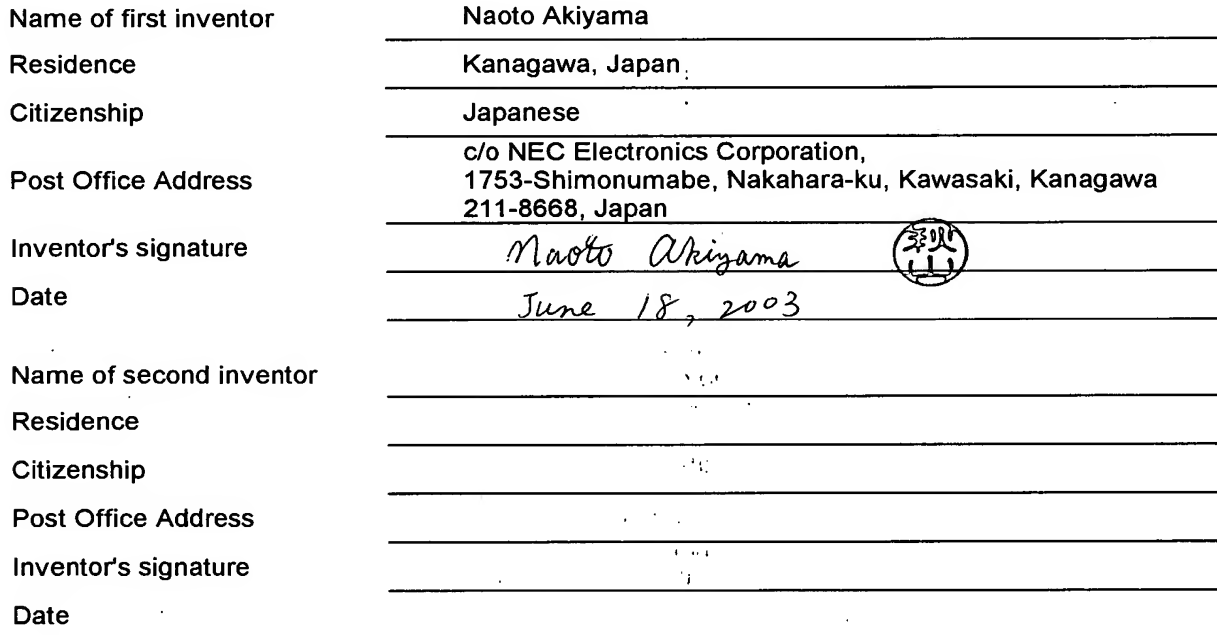 Name of first inventor Naoto Akiyama
Residence Kanagawa, Japan
Citizenship Japanese
c/o NEC Electronics Corporation,
Post Office Address 1753-Shimonumabe, Nakahara-ku, Kawasaki, Kanagawa
211-8668, Japan
Inventor's signature Naoto Akiyama
Date June 18, 2003
Name of second inventor
Residence
Citizenship
Post Office Address
Inventor's signature
Date